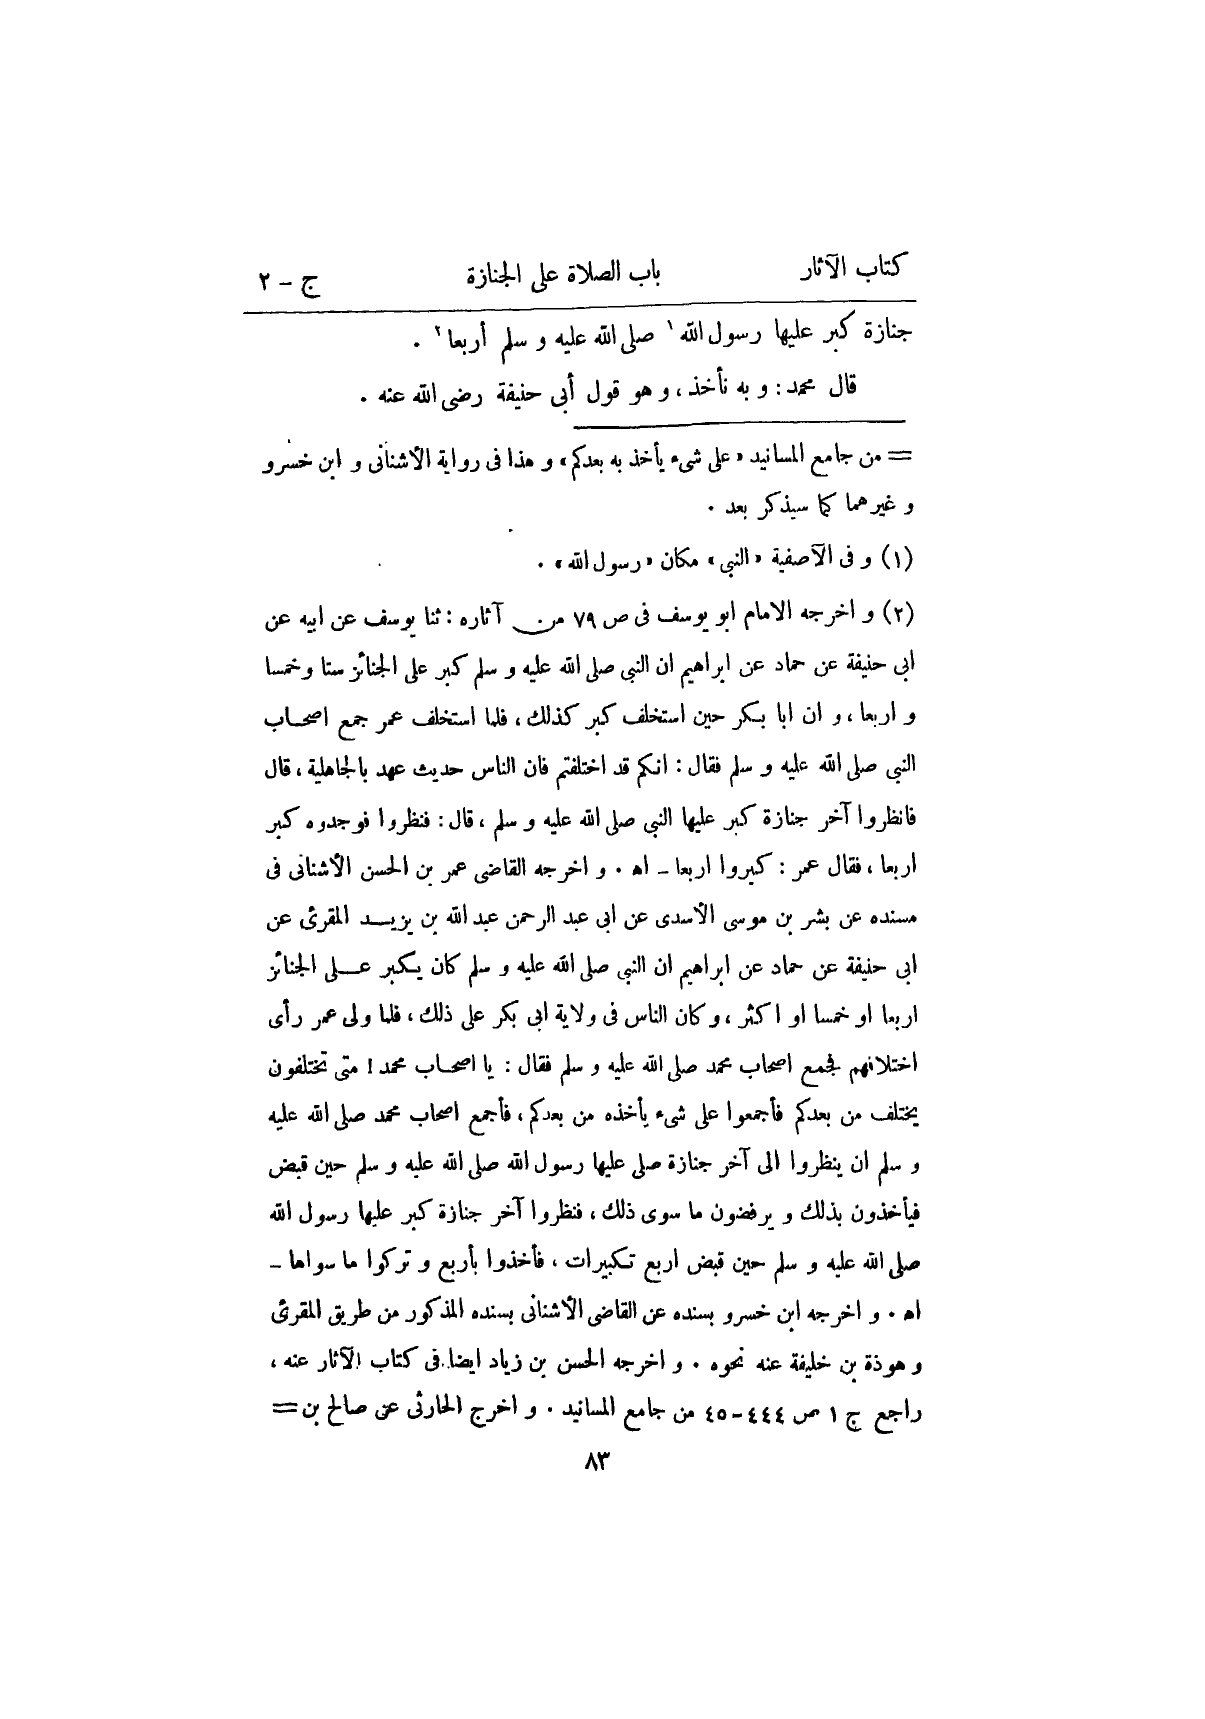 كتاب الآثار باب الصلاة على الجنازة ج - ٢
جنازة كبر عليها رسول الله ١ صلى الله عليه و سلم أربعا ٢ .
قال محمد : و به نأخذ ، و هو قول أبى حنيفة رضى الله عنه .
= من جامع المسانيد « على شىء يأخذ به بعدكم » و هذا فى رواية الأشنانى و ابن خسرو
و غيرهما كما سيذكر بعد .
(١) و فى الآصفية « النبى » مكان « رسول الله » .
(٢) و اخرجه الامام ابو يوسف فى ص ٧٩ من آثاره : ثنا يوسف عن ابيه عن
ابى حنيفة عن حماد عن ابراهيم ان النبى صلى الله عليه و سلم كبر على الجنائز ستا وخمسا
و اربعا ، و ان ابا بكر حين استخلف كبر كذلك ، فلما استخلف عمر جمع اصحاب
النبى صلى الله عليه و سلم فقال : انكم قد اختلفتم فان الناس حديث عهد بالجاهلية ، قال
فانظروا آخر جنازة كبر عليها النبى صلى الله عليه و سلم ، قال : فنظروا فوجدوه كبر
اربعا ، فقال عمر : كبروا اربعا - اه . و اخرجه القاضى عمر بن الحسن الأشنانى فى
مسنده عن بشر بن موسى الأسدى عن ابى عبد الرحمن عبد الله بن يزيد المقرئ عن
ابى حنيفة عن حماد عن ابراهيم ان النبى صلى الله عليه و سلم كان يكبر على الجنائز
اربعا او خمسا او اكثر ، و كان الناس فى ولاية ابى بكر على ذلك ، فلما ولى عمر رأى
اختلافهم فجمع اصحاب محمد صلى الله عليه و سلم فقال : يا اصحاب محمد ! متى تختلفون
يختلف من بعدكم فأجمعوا على شىء يأخذه من بعدكم ، فأجمع اصحاب محمد صلى الله عليه
و سلم ان ينظروا الى آخر جنازة صلى عليها رسول الله صلى الله عليه و سلم حين قبض
فيأخذون بذلك و يرفضون ما سوى ذلك ، فنظروا آخر جنازة كبر عليها رسول الله
صلى الله عليه و سلم حين قبض اربع تكبيرات ، فأخذوا بأربع و تركوا ما سواها -
اه . و اخرجه ابن خسرو بسنده عن القاضى الأشنانى بسنده المذكور من طريق المقرئ
و هوذة بن خليفة عنه نحوه . و اخرجه الحسن بن زياد ايضا فى كتاب الآثار عنه ،
راجع ج ١ ص ٤٤٤-٤٥ من جامع المسانيد . و اخرج الحارثى عن صالح بن =
٨٣